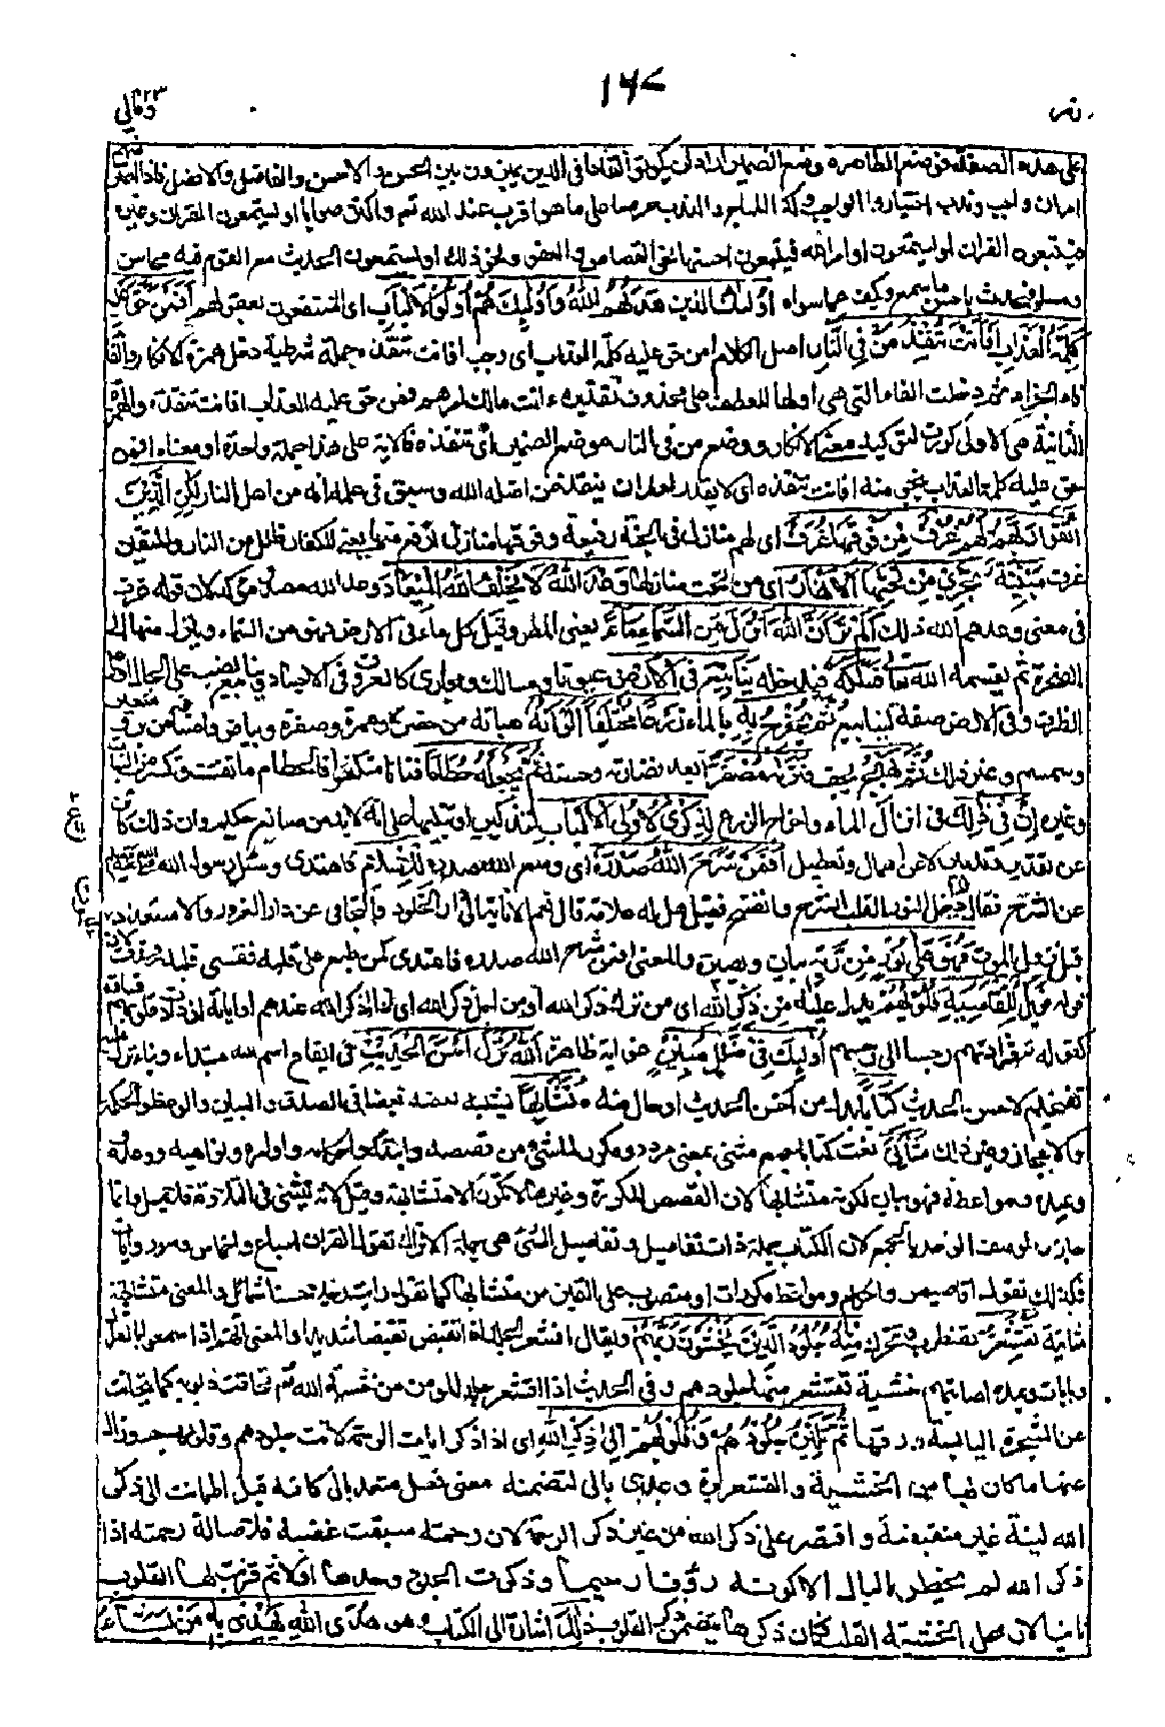 ١٤٧
زمر
ومالي ٢٣
على هذه الصفة فوضع الظاهر وضع الضمير اراد ان يكونوا نقادا فى الدين يميزون بين الحسن والاحسن والفاضل والافضل فاذا اعترضهم
امران واجب وندب اختاروا الواجب وكذا المباح والندب حرصا على ما هو اقرب عند الله تع واكثر ثوابا او يستمعون القران وغيره
فيتبعون القران او يستمعون اوامر الله فيتبعون احسنها نحو القصاص والعفو ونحو ذلك او يستمعون الحديث مع القوم فيه محاسن
ومساو فيحدث باحسن ما سمع ويكف عما سواه اُولٰئِكَ الذين هَدٰىهُمُ اللهُ وَاُولٰئِكَ هُمْ اُولُوا الْاَلْبَابِ اى المنتفعون بعقولهم اَفَمَنْ حَقَّ عَلَيْهِ
كَلِمَةُ الْعَذَابِ اَفَاَنْتَ تُنْقِذُ مَنْ فِى النَّارِ اصل الكلام امن حق عليه كلمة العذاب اى وجب افانت تنقذه جملة شرطية دخل همزة الانكار والفاء
فاء الجزاء ثم دخلت الفاء التى هى اولها للعطف على محذوف تقديره ءانت مالك امرهم فمن حق عليه العذاب افانت تنقذه والهمزة
الثانية هى الاولى كررت لتوكيد معنى الانكار ووضع من فى النار موضع الضمير اى تنقذه فالاية على هذا جملة واحدة او معناه افمن
حق عليه كلمة العذاب ينجى منه افانت تنقذه اى لا يقدر احد ان ينقذ من اضله الله وسبق فى علمه انه من اهل النار لٰكِنِ الَّذِيْنَ
اتَّقَوْا رَبَّهُمْ لَهُمْ غُرَفٌ مِنْ فَوْقِهَا غُرَفٌ اى لهم منازل فى الجنة رفيعة وفوقها منازل ارفع منها يعنى للكفار ظلل من النار وللمتقين
غرف مَبْنِيَّةٌ تَجْرِىْ مِنْ تَحْتِهَا الْاَنْهَارُ اى من تحت منازلها وَعْدَ اللهِ لَا يُخْلِفُ اللهُ الْمِيْعَادَ وعد الله مصدر مؤكد لان قوله غرف
فى معنى وعدهم الله ذلك اَلَمْ تَرَ اَنَّ اللهَ اَنْزَلَ مِنَ السَّمَاءِ مَاءً يعنى المطر وقيل كل ماء فى الارض فهو من السماء وينزل منها الى
الصخرة ثم يقسمه الله تعالى فَسَلَكَهٗ فادخله يَنَابِيْعَ فِى الْاَرْضِ عيونا ومسالك ومجارى كالعروق فى الاجساد وينابيع نصب على الحال او على
الظرف وفى الارض صفة لينابيع ثُمَّ يُخْرِجُ بِهٖ بالماء زَرْعًا مُخْتَلِفًا اَلْوَانُهٗ هيأته من خضرة وحمرة وصفرة وبياض واصنافه من بر و
وسمسم وغير ذلك ثُمَّ يَهِيْجُ يجف فَتَرٰىهُ مُصْفَرًّا بعد نضارته وحسنه ثُمَّ يَجْعَلُهٗ حُطَامًا فتاتا متكسرا فالحطام ما تفتت وتكسر من النبات
وغيره اِنَّ فِىْ ذٰلِكَ فى انزال الماء واخراج الزرع لَذِكْرٰى لِاُولِى الْاَلْبَابِ لتذكيرا وتنبيها على انه لابد من صانع حكيم وان ذلك كائن
عن تقدير وتدبير لا عن اهمال وتعطيل اَفَمَنْ شَرَحَ اللهُ صَدْرَهٗ اى وسع الله صدره لِلْاِسْلَامِ فاهتدى وسئل رسول الله صلى الله عليه وسلم
عن الشرح فقال اذا دخل النور القلب انشرح وانفسح فقيل هل له علامة قال نعم الانابة الى دار الخلود والتجافى عن دار الغرور والاستعداد للموت
قبل نزول الموت فَهُوَ عَلٰى نُوْرٍ مِنْ رَبِّهٖ بيان وبصيرة والمعنى افمن شرح الله صدره فاهتدى كمن طبع على قلبه فقسى قلبه
قوله فَوَيْلٌ لِلْقَاسِيَةِ قُلُوْبُهُمْ يدل عليه مِنْ ذِكْرِ اللهِ اى من ترك ذكر الله او من اجل ذكر الله اى اذا ذكر الله عندهم او اياته ازدادت قلوبهم
كقوله فزادتهم رجسا الى رجسهم اُولٰئِكَ فِىْ ضَلٰلٍ مُبِيْنٍ غواية ظاهرة اَللهُ نَزَّلَ اَحْسَنَ الْحَدِيْثِ فى ايقاع اسم الله مبتداء وبناء نزل عليه
تفخيم لاحسن الحديث كِتَابًا بدل من احسن الحديث او حال منه مُتَشَابِهًا يشبه بعضه بعضا فى الصدق والبيان والوعظ والحكمة
والاعجاز وغير ذلك مَثَانِىَ نعت كتابا جمع مثنى بمعنى مردد ومكرر لما ثنى من قصصه وانبائه واحكامه واوامره ونواهيه ووعده
وعيده ومواعظه فهو بيان لكونه متشابها لان القصص المكررة وغيرها لا تكون الا متشابهة وقيل لانه يثنى فى التلاوة فلا يمل وانما
جاز وصف الواحد بالجمع لان الكتاب جملة ذات تفاصيل وتفاصيل الشئ هى جملته الا تراك تقول القران اسباع واخماس وسور وايات
فكذلك تقول اقاصيص واحكام ومواعظ مكررات او منصوب على التمييز من متشابها كما تقول رايت رجلا حسنا شمائل والمعنى متشابهة
مثانيه تَقْشَعِرُّ تضطرب وتتحرك مِنْهُ جُلُوْدُ الَّذِيْنَ يَخْشَوْنَ رَبَّهُمْ ويقال اقشعر الجلد اذا تقبض تقبضا شديدا والمعنى انهم اذا سمعوا بالقران
وبايات وعيده اصابتهم خشية تقشعر منها جلودهم وفى الحديث اذا اقشعر جلد المؤمن من خشية الله تع تحاتت ذنوبه كما يتحات
عن الشجرة اليابسة ورقها ثُمَّ تَلِيْنُ جُلُوْدُهُمْ وَقُلُوْبُهُمْ اِلٰى ذِكْرِ اللهِ اى اذا ذكر ايات الرحمة لانت جلودهم وقلوبهم وزال
عنها ما كان فيها من الخشية والقشعريرة وعدى بالى لتضمنه معنى فعل متعد بالى كانه قيل اطمانت الى ذكر
الله لينة غير منقبضة واقتصر على ذكر الله من غير ذكر الرحمة لان رحمته سبقت غضبه فلاصالة رحمته اذا
ذكر الله لم يخطر بالبال الا كونه رؤفا رحيما وذكرت الجلود وحدها اولا ثم قرنت بها القلوب
ثانيا لان محل الخشية القلب فكان ذكرها يتضمن ذكر القلوب ذٰلِكَ اشارة الى الكتاب وهو هُدَى اللهِ يَهْدِىْ بِهٖ مَنْ يَشَاءُ